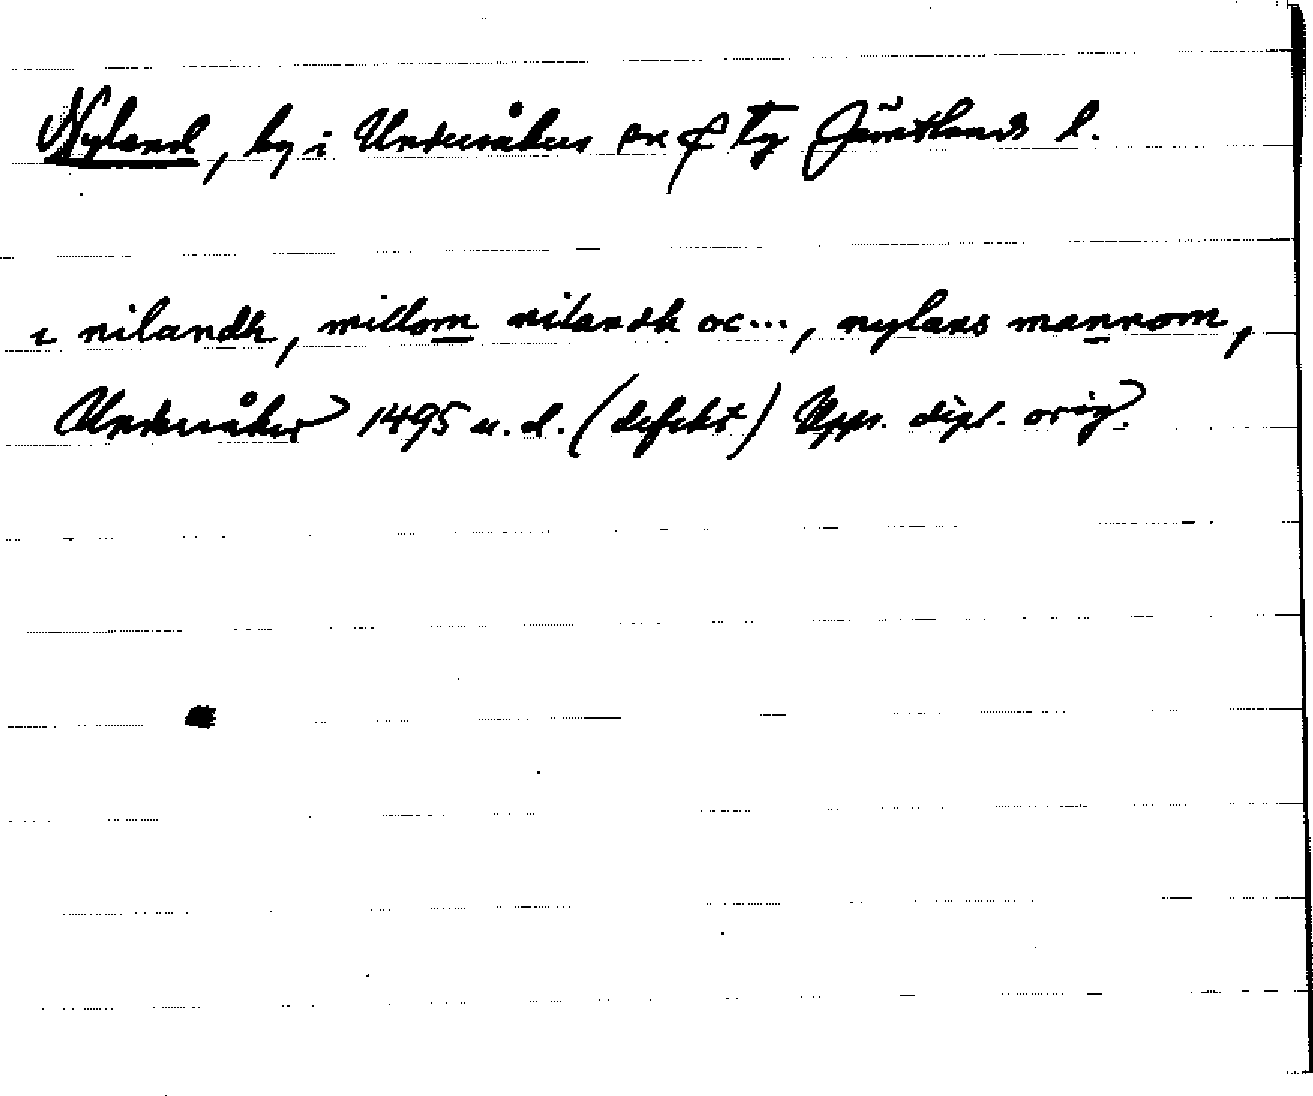 Nyland, by i Undersåkers sn o tg Jämtlands l.
i nilandh, millom nilandh oc..., nylans mannom,
Undersåker 1495 u.d. (defekt) Upps. dipl. orig.